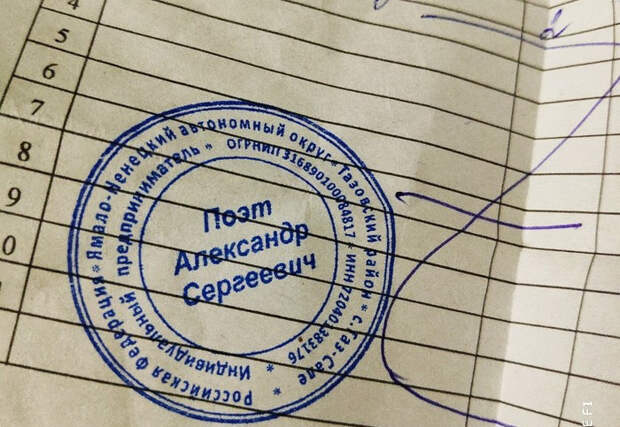 4
5
6
7
8
9
0
Российская Федерация * Ямало-Ненецкий автономный округ * Тазовский район * с. Газ-Сале
* Индивидуальный предприниматель * ОГРНИП 316890100084817 * ИНН 720401383176
Поэт
Александр
Сергеевич